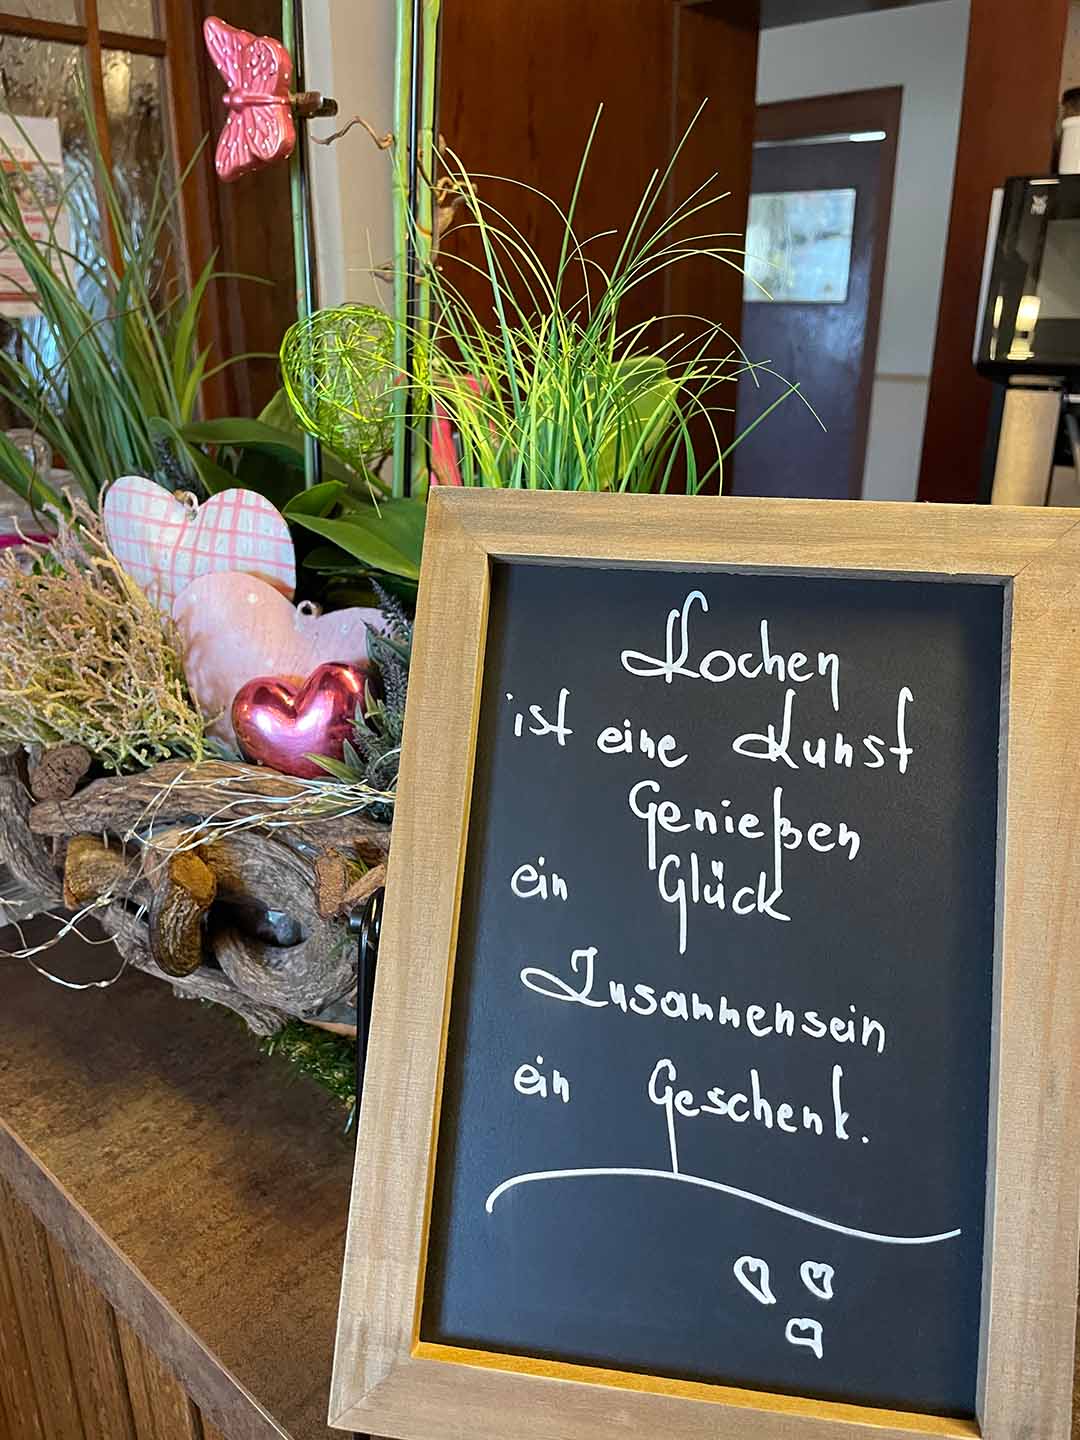 Kochen
ist eine Kunst
Genießen
ein Glück
Zusammensein
ein Geschenk.
WMF